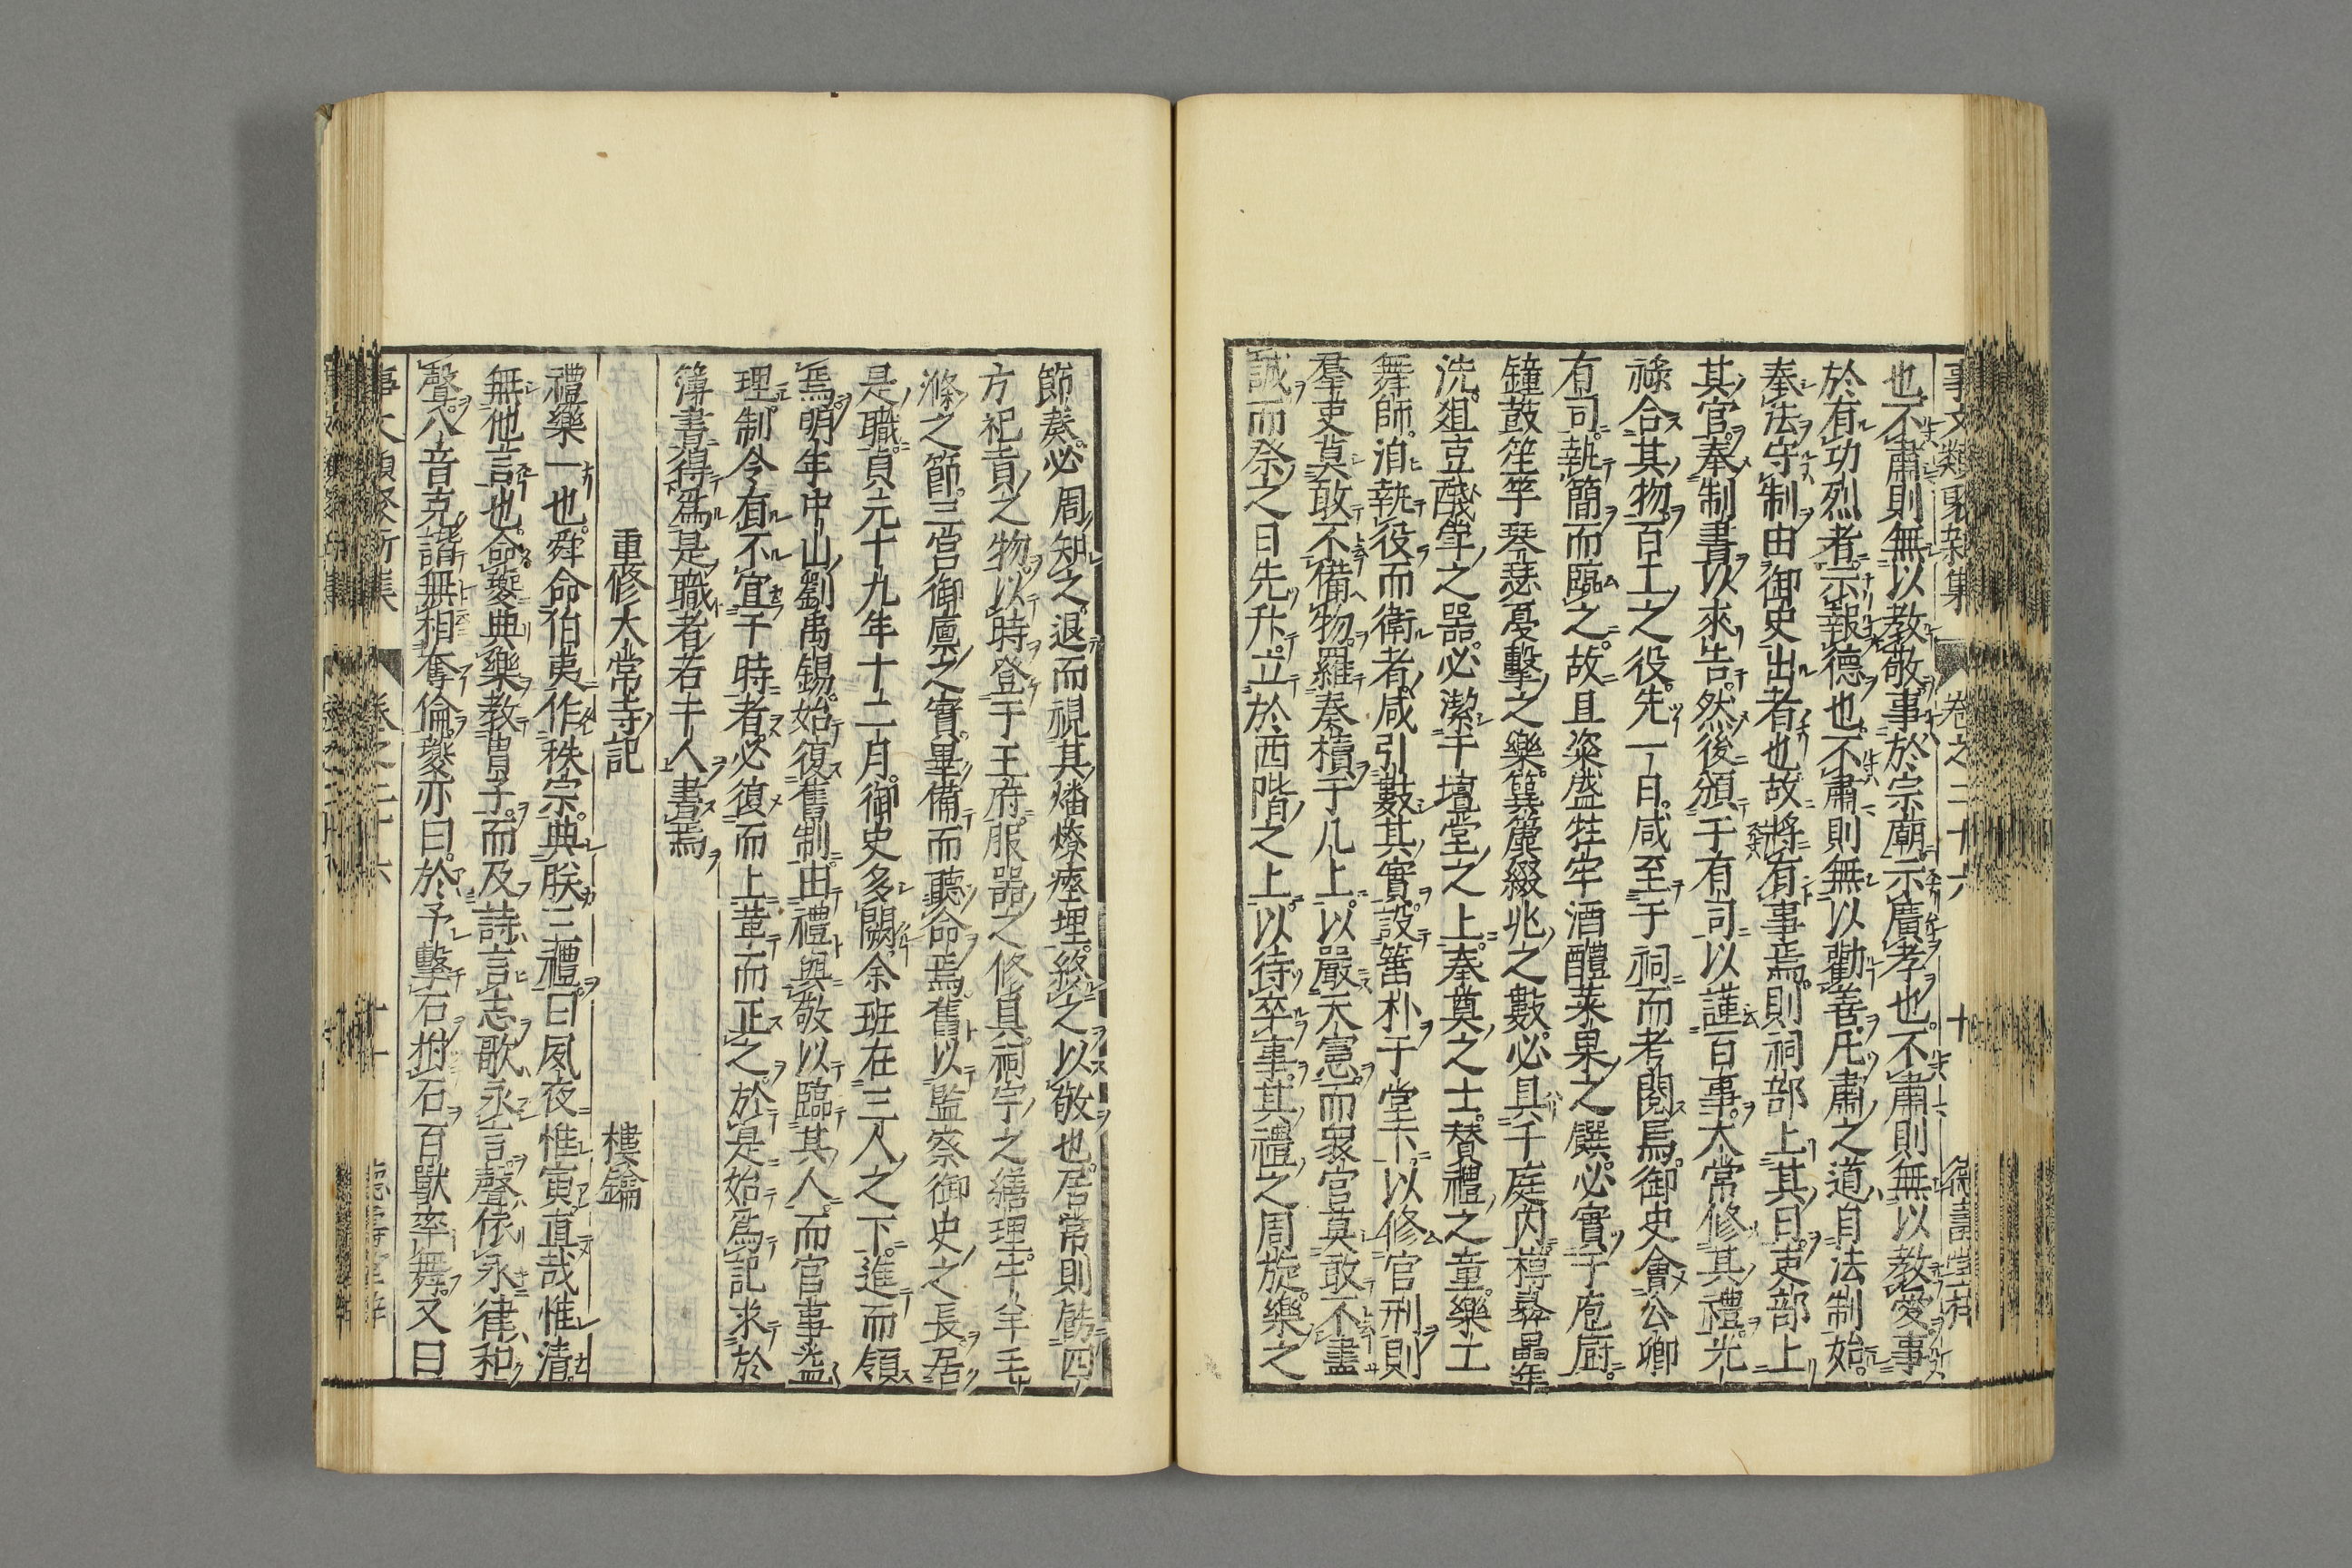 事文類聚新集 卷之二十六 十 德壽堂梓
也不肅則無以教敬事於宗廟示廣孝也不肅則無以教愛事
於有功烈者示報德也不肅則無以勸善凡肅之道自法制始
奉法守制由御史出者也故將有事焉則祠部上其日吏部上
其官奉制書以來告然後頒于有司以謹百事太常修其禮光
祿合其物百工之役先一日咸至于祠而考閱焉御史會公卿
有司執簡而臨之故且粢盛牲牢酒醴菜果之饌必實于庖廚
鐘鼓笙竽琴瑟戞擊之樂簨簴綴兆之數必具于庭內樽彞罍
洗俎豆醆斝之器必潔于壇堂之上奉奠之士贊禮之童樂工
舞師洎執役而衛者咸引數其實設簿朴于堂下以修官刑則
羣吏莫敢不備物羅奏櫝于几上以嚴天憲而眾官莫敢不盡
誠而祭之日先升立於西階之上以待卒事其禮之周旋樂之
節奏必周知之退而視其燔燎瘞埋終之以敬也居常則飭四
方祀貢之物以時登于王府服器之修具祠宇之繕理牛羊毛
滌之節三宮御廩之實畢備而聽命焉舊以監察御史之長居
是職貞元十九年十二月御史多闕余班在三人之下進而領
焉明年中山劉禹錫始復舊制由禮與敬以臨其人而官事益
理制令有不宜于時者必復而上葺而正之於是始爲記求於
簿書得爲是職者若干人書焉
重修大常寺記 樓鑰
禮樂一也舜命伯夷作秩宗典朕三禮曰夙夜惟寅直哉惟清
無他言也命夔典樂教胄子而及詩言志歌永言聲依永律和
聲八音克諧無相奪倫夔亦曰於予擊石拊石百獸率舞又曰
事文類聚新集 卷之二十六 十一 德壽堂梓